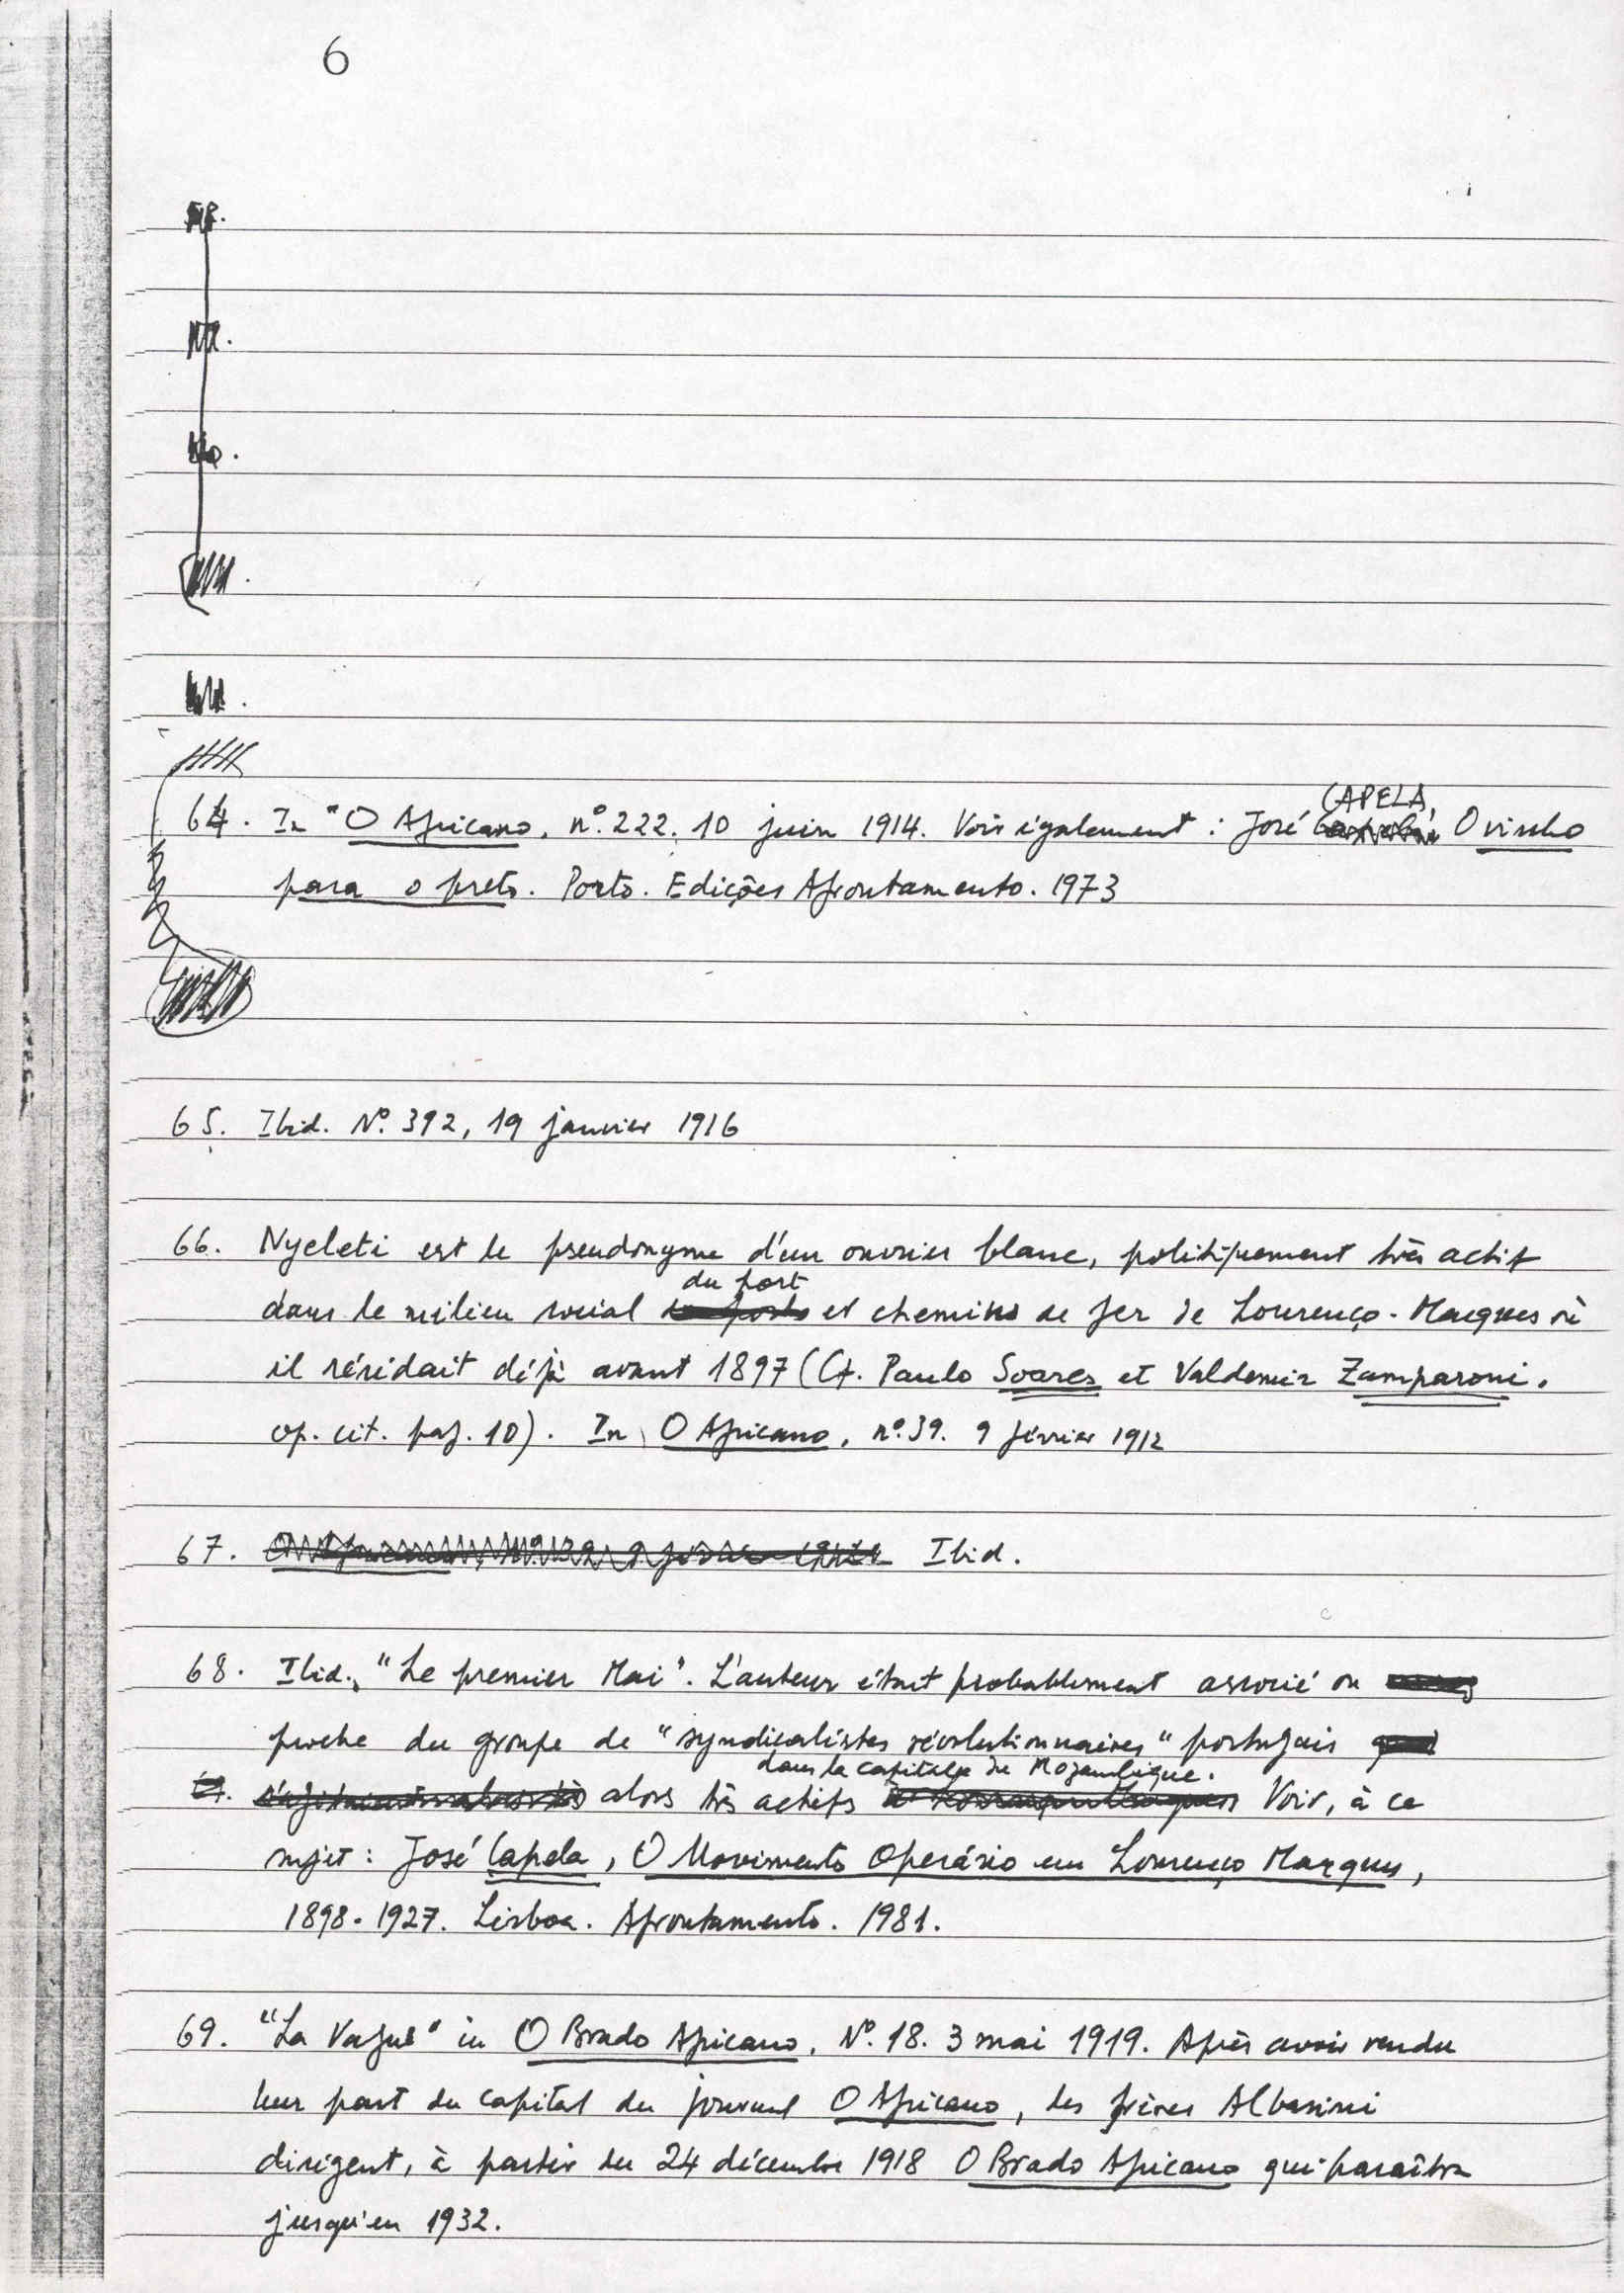 6
64. In "O Africano, nº.222. 10 juin 1914. Voir également : José CAPELA, O vinho
para o preto. Porto. Edições Afrontamento. 1973
65. Ibid. Nº. 392, 19 janvier 1916
66. Nyeleti est le pseudonyme d'un ouvrier blanc, politiquement très actif
du port
dans le milieu social et chemins de fer de Lourenço-Marques où
il résidait déjà avant 1897 (Cf. Paulo Soares et Valdemir Zamparoni.
op. cit. pag. 10). In O Africano, nº.39. 9 février 1912
67. Ibid.
68. Ibid., "Le premier Mai". L'auteur était probablement associé ou
proche du groupe de "syndicalistes révolutionnaires" portugais
dans la capitale du Mozambique.
alors très actifs Voir, à ce
sujet : José Capela, O Movimento Operário em Lourenço Marques,
1898-1927. Lisboa. Afrontamento. 1981.
69. "La Vague" in O Brado Africano, Nº. 18. 3 mai 1919. Après avoir vendu
leur part du capital du journal O Africano, les frères Albasini
dirigent, à partir du 24 décembre 1918 O Brado Africano qui paraîtra
jusqu'en 1932.